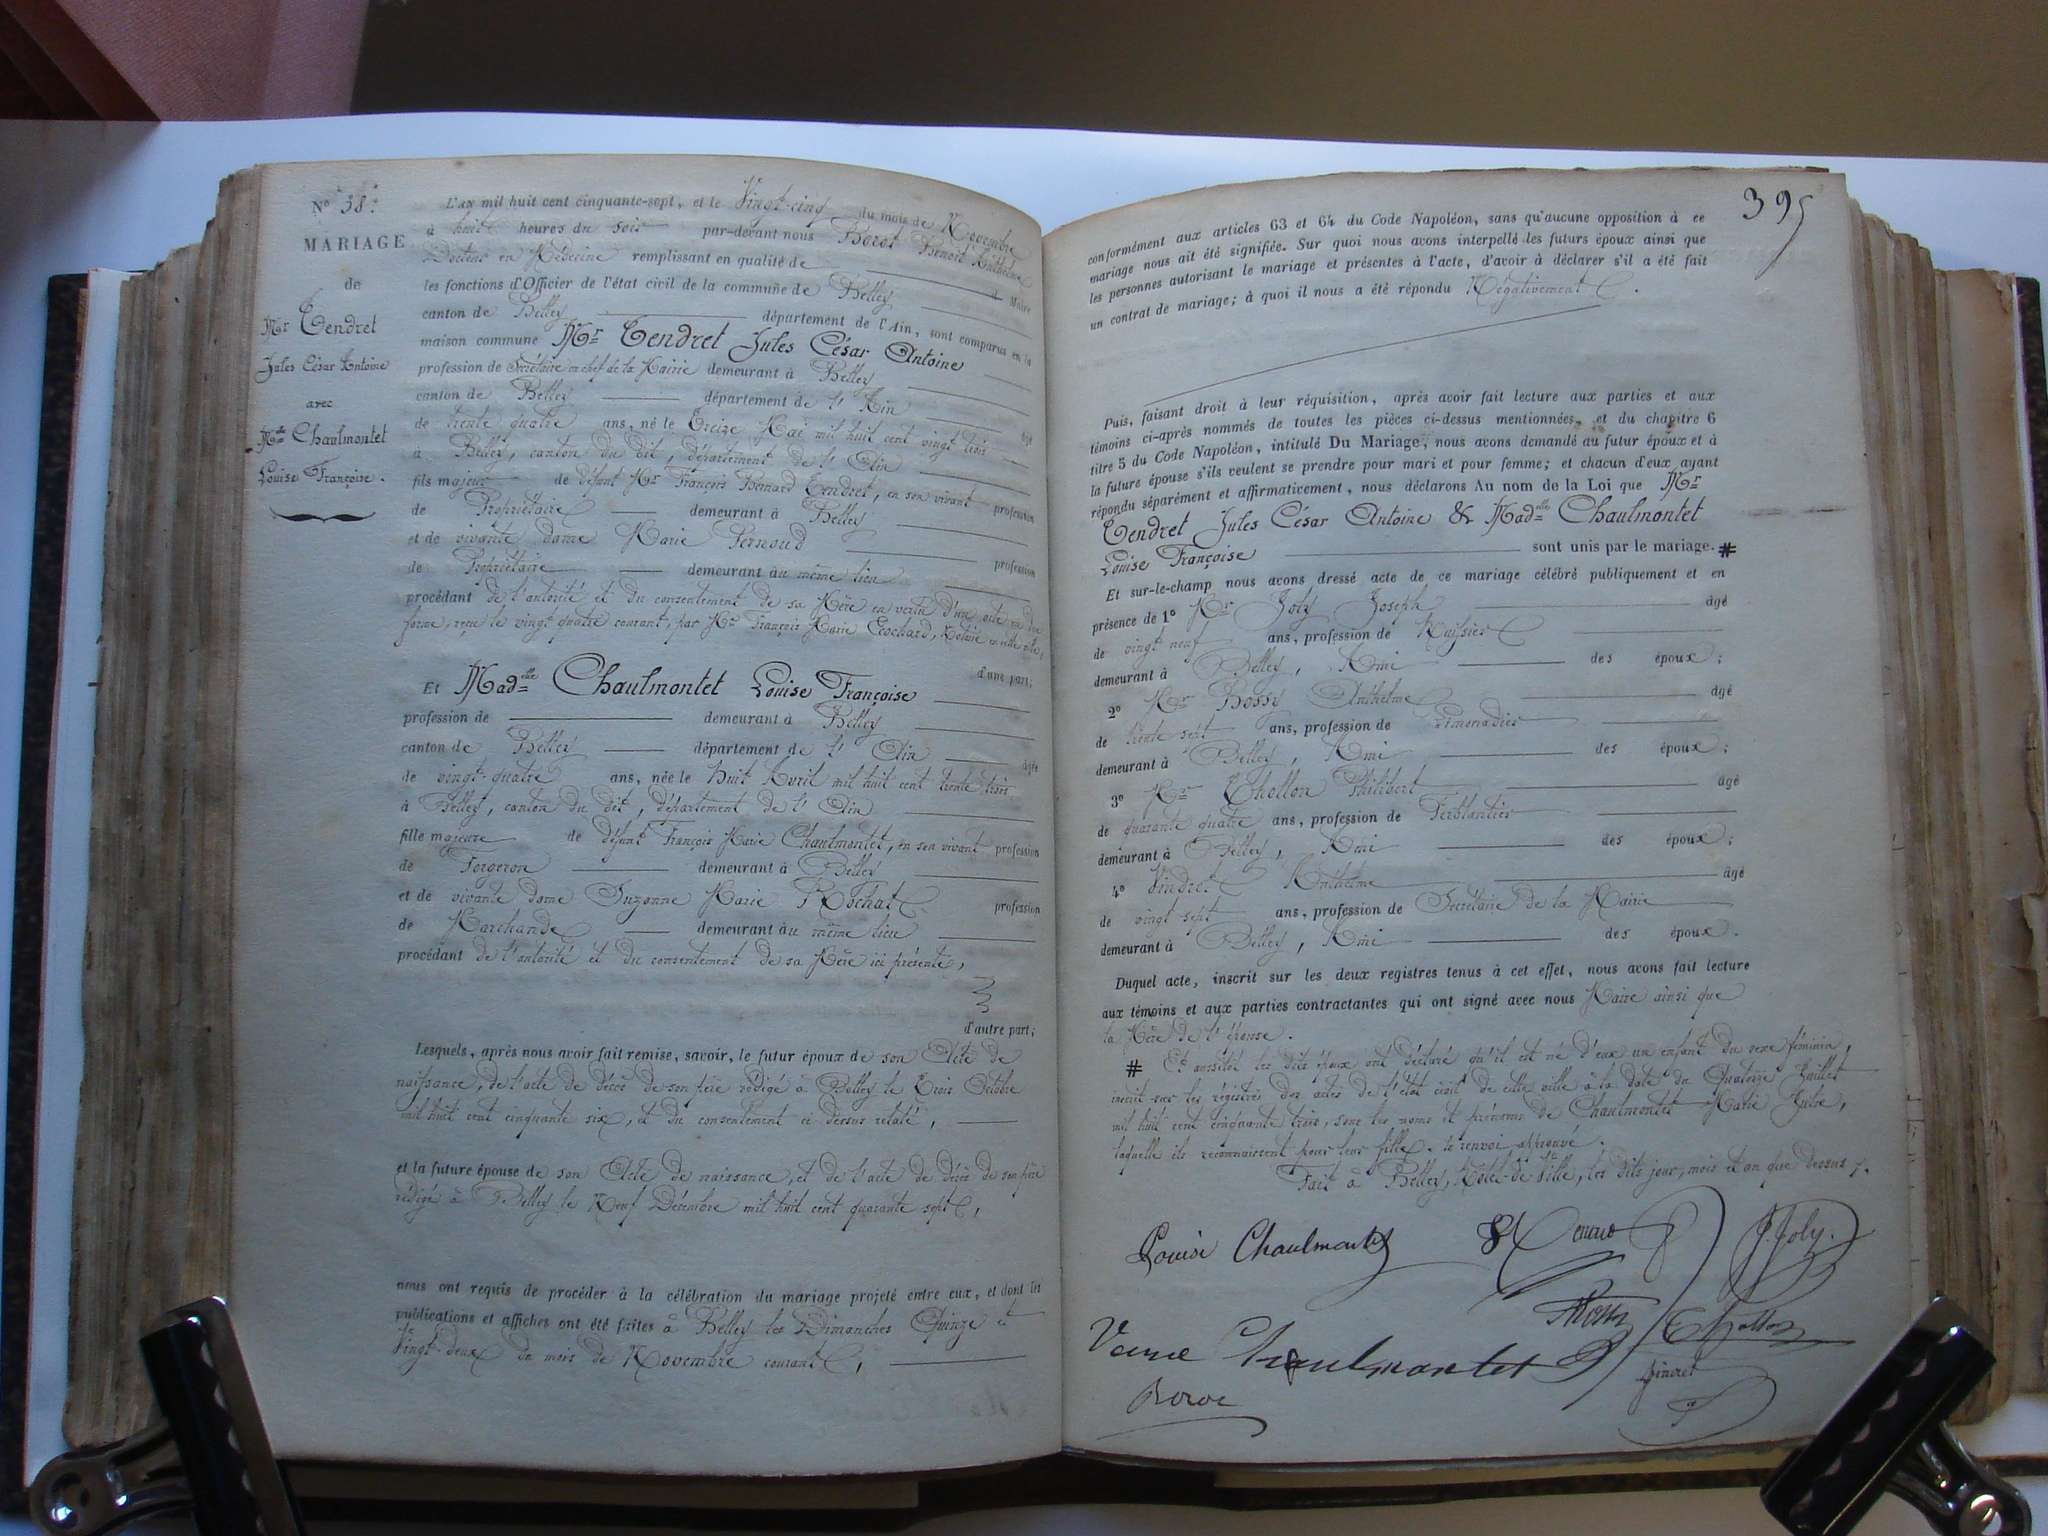 N° 38.
MARIAGE
de
Mr Tendret
Jules César Antoine
avec
Mlle Chaulmontet
Louise Françoise.
L'an mil huit cent cinquante-sept, et le Vingt-cinq du mois de Novembre
à huit heures du soir par-devant nous Benoit Anthelme
Docteur en Médecine remplissant en qualité de Maire
les fonctions d'Officier de l'état civil de la commune de Belley
canton de Belley département de l'Ain, sont comparus en la
maison commune Mr Tendret Jules César Antoine
profession de Secrétaire en chef de la Mairie demeurant à Belley
canton de Belley département de l'Ain âgé
de trente quatre ans, né le Treize Mai mil huit cent vingt trois
à Belley, canton du dit, département de l'Ain
fils majeur de défunt Mr François Bernard Tendret, en son vivant profession
de Propriétaire demeurant à Belley
et de vivante dame Marie Pernoud profession
de Propriétaire demeurant au même lieu
procédant de l'autorité et du consentement de sa Mère en vertu d'un acte en due
forme, reçu le vingt quatre courant, par Mre François Marie Cochard, Notaire en cette ville,
d'une part;
Et Madlle Chaulmontet Louise Françoise
profession de demeurant à Belley
canton de Belley département de l'Ain âgée
de vingt-quatre ans, née le Huit Avril mil huit cent trente trois
à Belley, canton du dit, département de l'Ain
fille majeure de défunt François Marie Chaulmontet, en son vivant profession
de Forgeron demeurant à Belley
et de vivante dame Suzanne Marie Rochat profession
de Marchande demeurant au même lieu
procédant de l'autorité et du consentement de sa Mère ici présente,
d'autre part;
Lesquels, après nous avoir fait remise, savoir, le futur époux de son Acte de
naissance, de l'acte de décès de son père rédigé à Belley le Trois Octobre
mil huit cent cinquante six, et du consentement ci dessus relaté,
et la future épouse de son Acte de naissance, et de l'acte de décès de son père
rédigé à Belley le Neuf Décembre mil huit cent quarante sept,
nous ont requis de procéder à la célébration du mariage projeté entre eux, et dont les
publications et affiches ont été faites à Belley les Dimanches Quinze et
Vingt-deux du mois de Novembre courant,
395
conformément aux articles 63 et 64 du Code Napoléon, sans qu'aucune opposition à ce
mariage nous ait été signifiée. Sur quoi nous avons interpellé les futurs époux ainsi que
les personnes autorisant le mariage et présentes à l'acte, d'avoir à déclarer s'il a été fait
un contrat de mariage; à quoi il nous a été répondu Négativement.
Puis, faisant droit à leur réquisition, après avoir fait lecture aux parties et aux
témoins ci-après nommés de toutes les pièces ci-dessus mentionnées, et du chapitre 6
titre 5 du Code Napoléon, intitulé Du Mariage, nous avons demandé au futur époux et à
la future épouse s'ils veulent se prendre pour mari et pour femme; et chacun d'eux ayant
répondu séparément et affirmativement, nous déclarons Au nom de la Loi que Mr
Tendret Jules César Antoine & Madlle Chaulmontet
Louise Françoise sont unis par le mariage. #
Et sur-le-champ nous avons dressé acte de ce mariage célébré publiquement et en
présence de 1° Mr Joly Joseph âgé
de vingt neuf ans, profession de Huissier
demeurant à Belley, Ami des époux;
2° Mr Bossy Anthelme âgé
de trente sept ans, profession de Limonadier
demeurant à Belley, Ami des époux;
3° Mr Chollon Philibert âgé
de quarante quatre ans, profession de Ferblantier
demeurant à Belley, Ami des époux;
4° Vindret Anthelme âgé
de vingt sept ans, profession de Secrétaire de la Mairie
demeurant à Belley, Ami des époux.
Duquel acte, inscrit sur les deux registres tenus à cet effet, nous avons fait lecture
aux témoins et aux parties contractantes qui ont signé avec nous Maire ainsi que
la Mère de l'épouse.
# Et aussitôt les dits époux ont déclaré qu'il est né d'eux un enfant du sexe féminin,
inscrit sur les régistres des actes de l'état civil de cette ville à la date du Quatorze Juillet
mil huit cent cinquante trois, sous les noms et prénoms de Chaulmontet Marie Julie,
laquelle ils reconnaissent pour leur fille. le renvoi approuvé.
Fait à Belley, Hôtel-de-Ville, les dits jour, mois et an que dessus.
Louise Chaulmontet
J. Joly.
Chollon
Veuve Chaulmontet
Vindret